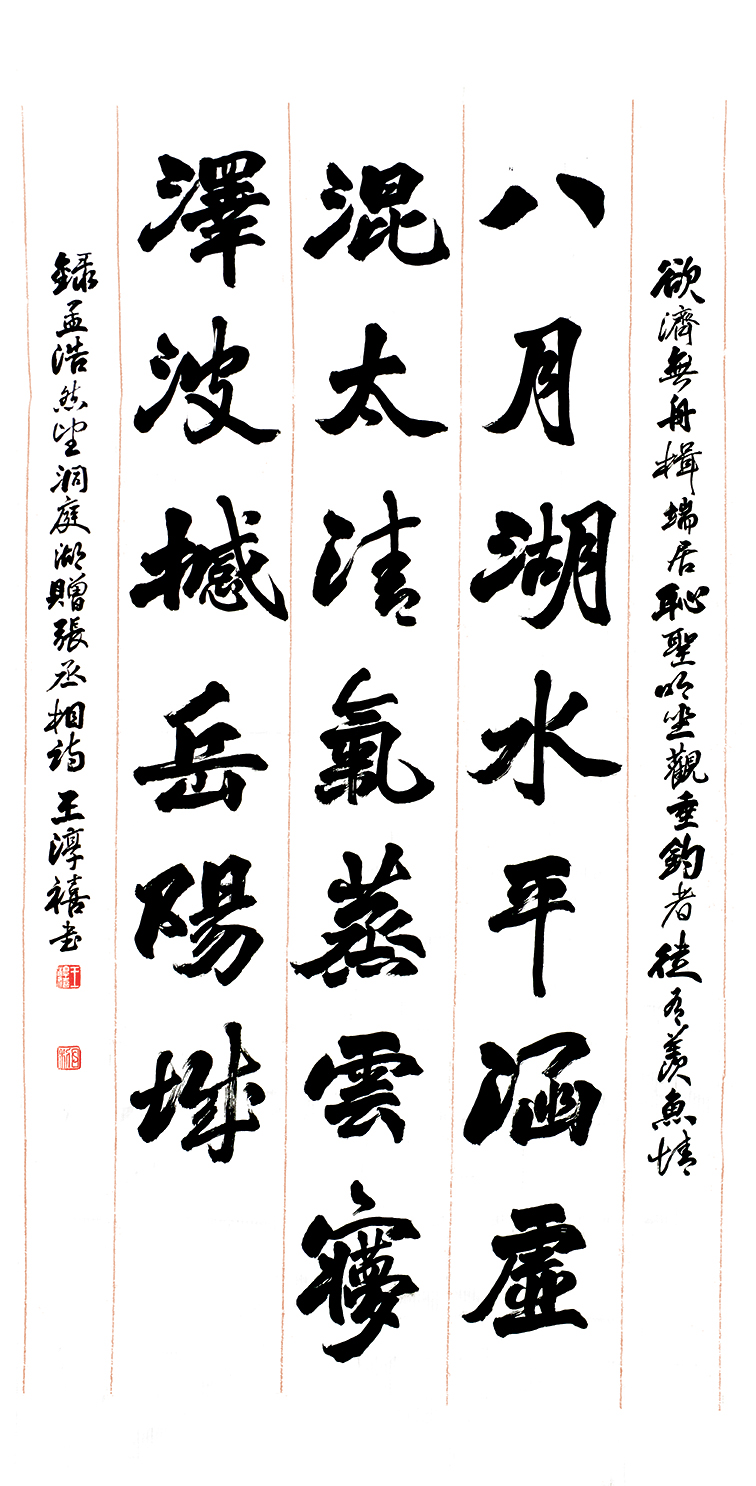 欲濟無舟楫端居恥聖明坐觀垂釣者徒有羨魚情
八月湖水平涵虛
混太清氣蒸雲夢
澤波撼岳陽城
録孟浩然望洞庭湖贈張丞相詩 王淳禧書